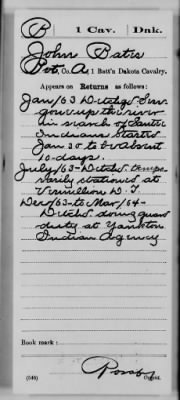 B 1 Cav. Dak.
John Bates
Pvt, Co. A, 1 Batt'n Dakota Cavalry.
Appears on Returns as follows:
Jan/63 Detchd. Serv.
gone up the river
in search of Santee
Indians Started
Jan 30 to be absent
10 days.
July/63-Detchd. tempo-
rarily stationed at
Vermillion D. T.
Dec/63-to Mar/64-
Detchd. doing guard
duty at Yankton
Indian Agency
Book mark:
(546)
Copyist.